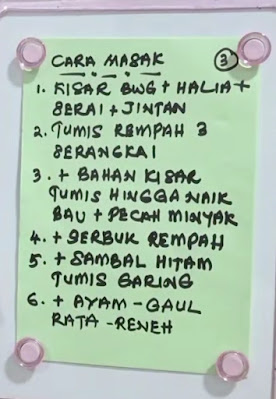 CARA MASAK
3
1. KISAR BWG + HALIA +
SERAI + JINTAN
2. TUMIS REMPAH 3
SERANGKAI
3. + BAHAN KISAR
TUMIS HINGGA NAIK
BAU + PECAH MINYAK
4. + SERBUK REMPAH
5. + SAMBAL HITAM
TUMIS GARING
6. + AYAM - GAUL
RATA - RENEH